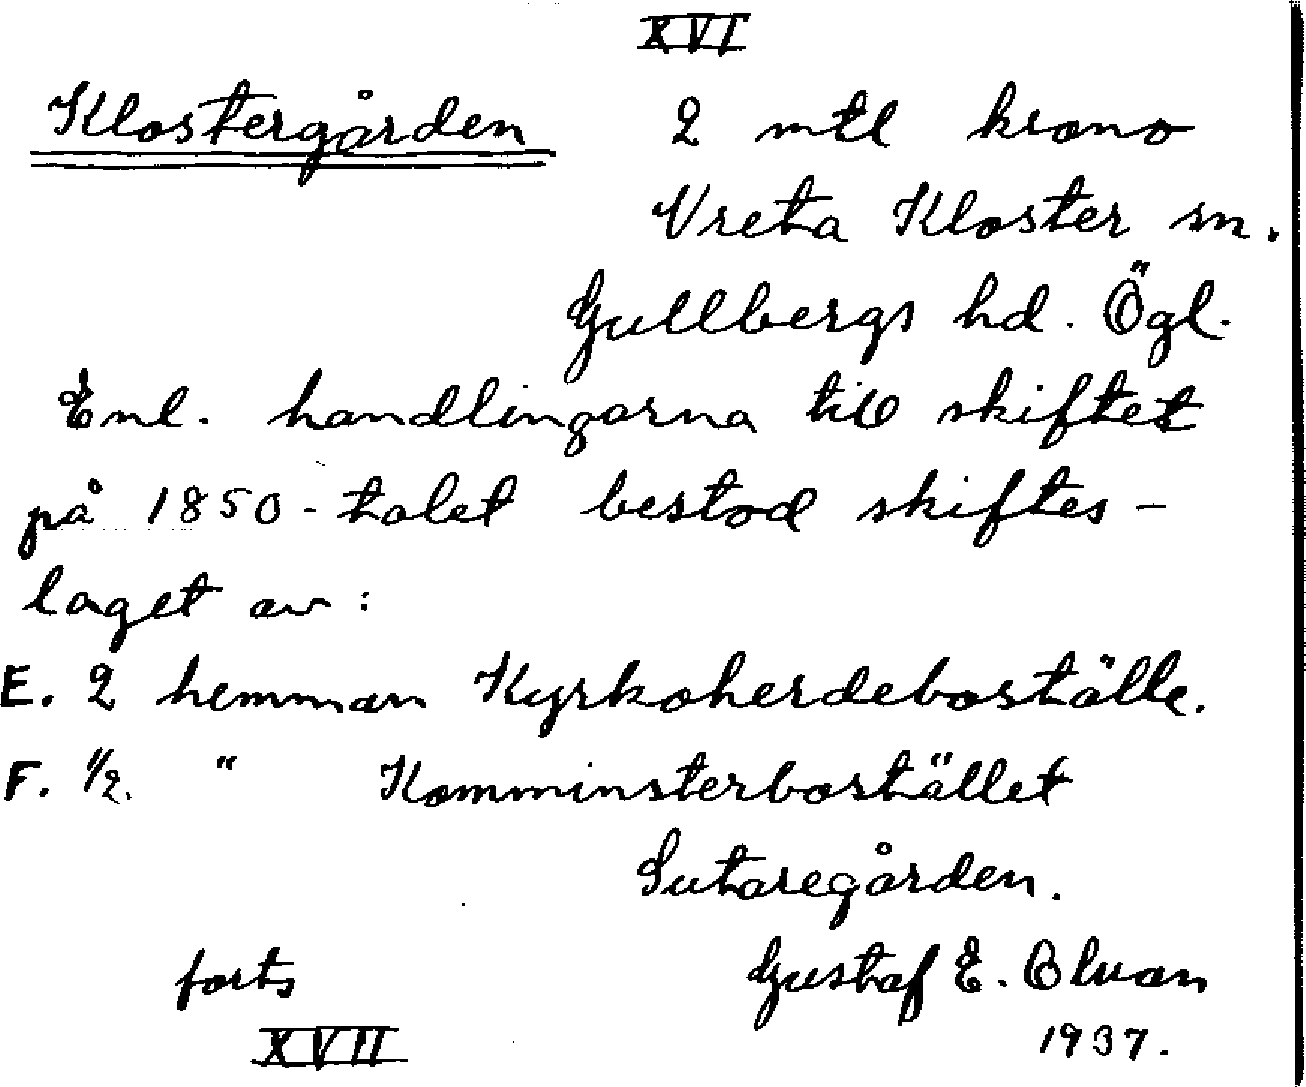 XVI
Klostergården 2 mtl krono
Vreta Kloster sn.
Gullbergs hd. Ögl.
Enl. handlingarna till skiftet
på 1850-talet bestod skiftes-
laget av:
E. 2 hemman Kyrkoherdeboställe.
F. 1/2. " Komministerbostället
Sutaregården.
forts Gustaf E.
XVII 1937.